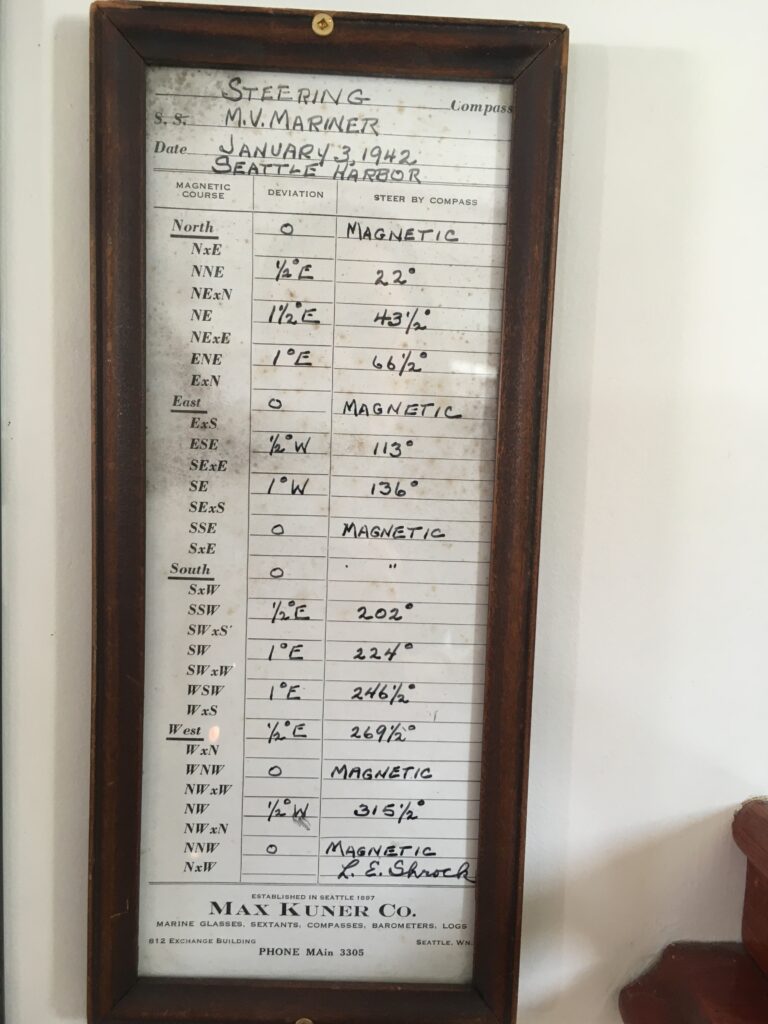 STEERING Compass
S. S. M.V. MARINER
Date JANUARY 3, 1942
SEATTLE HARBOR
MAGNETIC COURSE DEVIATION STEER BY COMPASS
North 0 MAGNETIC
NxE
NNE 1/2° E 22°
NExN
NE 1 1/2° E 43 1/2°
NExE
ENE 1° E 66 1/2°
ExN
East 0 MAGNETIC
ExS
ESE 1/2° W 113°
SExE
SE 1° W 136°
SExS
SSE 0 MAGNETIC
SxE
South 0 "
SxW
SSW 1/2° E 202°
SWxS
SW 1° E 224°
SWxW
WSW 1° E 246 1/2°
WxS
West 1/2° E 269 1/2°
WxN
WNW 0 MAGNETIC
NWxW
NW 1/2° W 315 1/2°
NWxN
NNW 0 MAGNETIC
NxW L. E. Shrock
ESTABLISHED IN SEATTLE 1897
MAX KUNER CO.
MARINE GLASSES, SEXTANTS, COMPASSES, BAROMETERS, LOGS
812 EXCHANGE BUILDING SEATTLE, WN.
PHONE MAin 3305